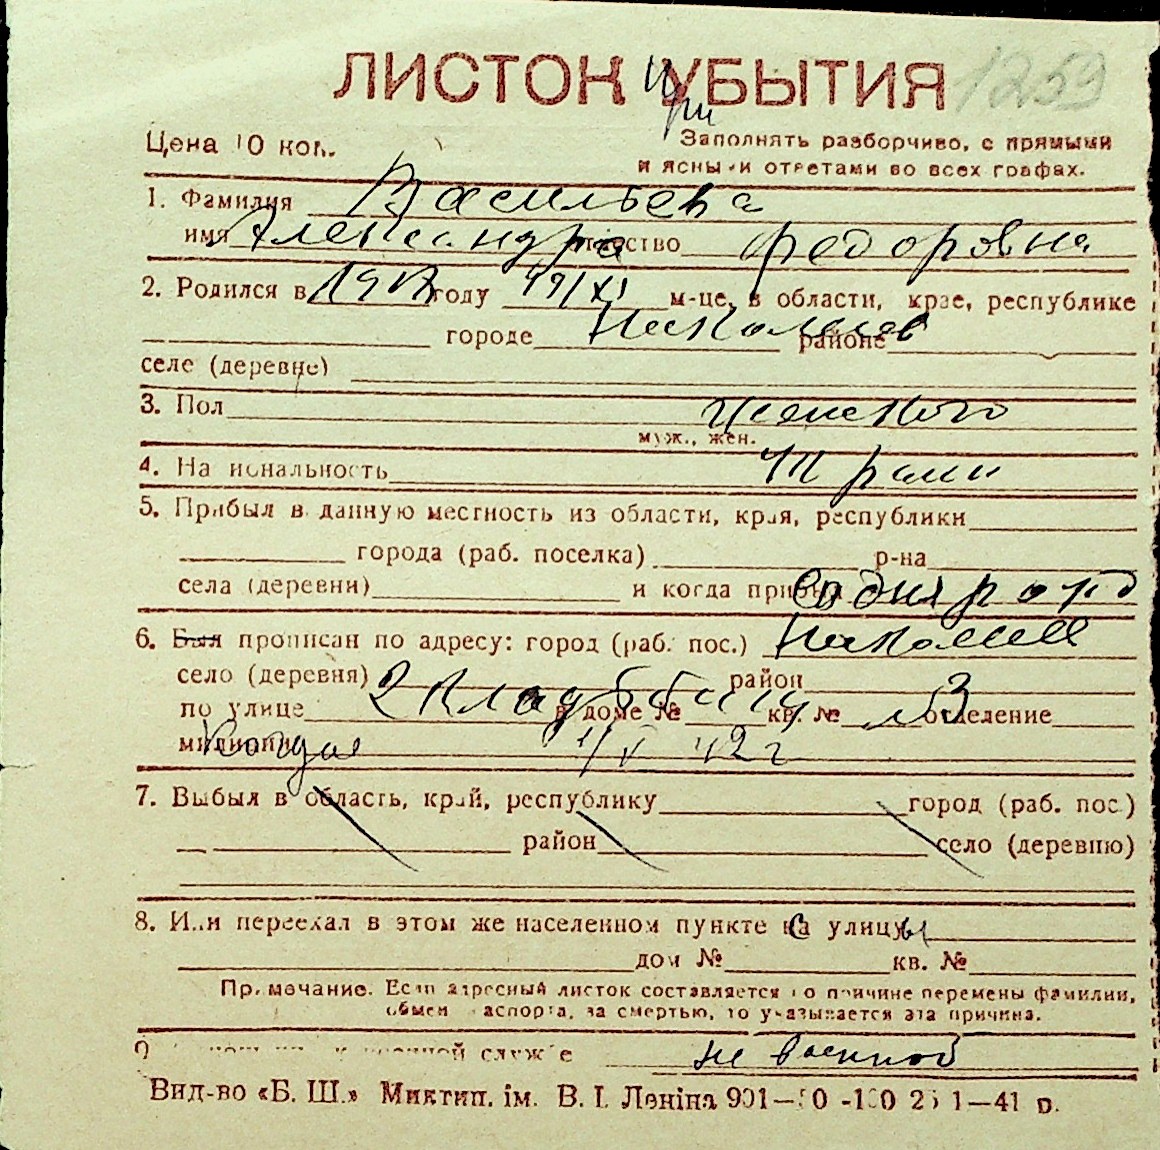 ЛИСТОК УБЫТИЯ 1259
При
Цена 10 коп. Заполнять разборчиво, с прямыми
и ясными ответами во всех графах.
1. Фамилия Васильева
имя Александра отчество Федоровна
2. Родился в 1917 году 19/XI м-це, в области, крае, республике
городе Николаев районе
селе (деревне)
3. Пол женского
муж., жен.
4. Национальность
5. Прибыл в данную местность из области, края, республики
города (раб. поселка) р-на
села (деревни) и когда прибыл со дня рожд
6. Был прописан по адресу: город (раб. пос.) Николаев
село (деревня) район
по улице 2 Кладб в доме № кв. № 3 отделение
милиции Когда 1/V 42 г
7. Выбыл в область, край, республику город (раб. пос.)
район село (деревню)
8. Или переехал в этом же населенном пункте с улицы
дом № кв. №
Примечание. Если адресный листок составляется по причине перемены фамилии,
обмен паспорта, за смертью, то указывается эта причина.
9 службе не военнооб
Вид-во «Б. Ш.» Миктип. ім. В. І. Леніна 901— 1—41 р.